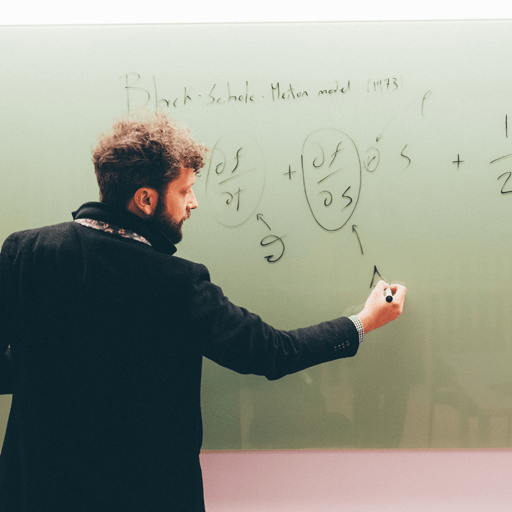 Black-Schole-Merton model (1973)
∂f/∂t + ∂f/∂s s + 1/2